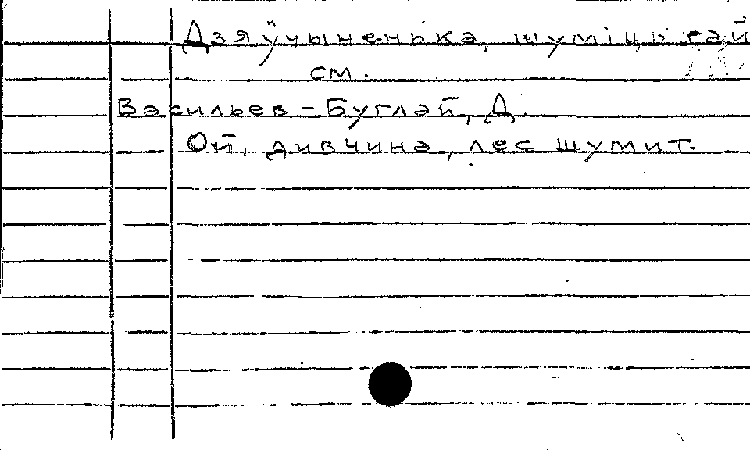 Дзяўчыненька, шуміць гай
см.
Васильев-Буглай, Д.
Ой, дивчина, лес шумит.